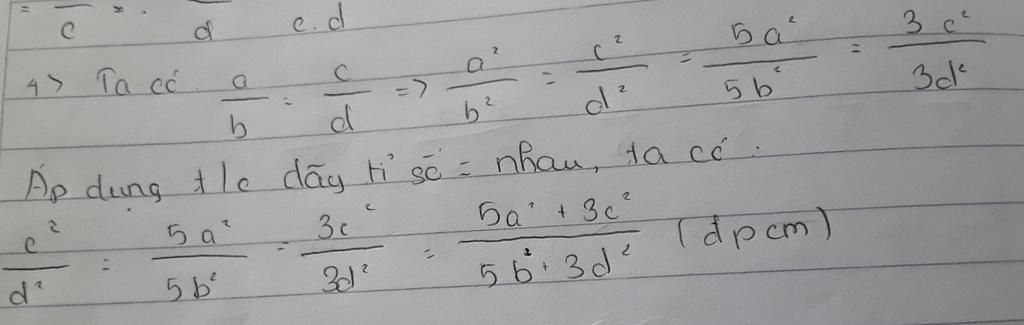 = — * . —
c d c.d
4> Ta có a/b = c/d => a²/b² = c²/d² = 5a²/5b² = 3c²/3d²
Áp dụng t/c dãy tỉ số = nhau, ta có :
c²/d² = 5a²/5b² = 3c²/3d² = 5a² + 3c²/5b² + 3d² (đpcm)